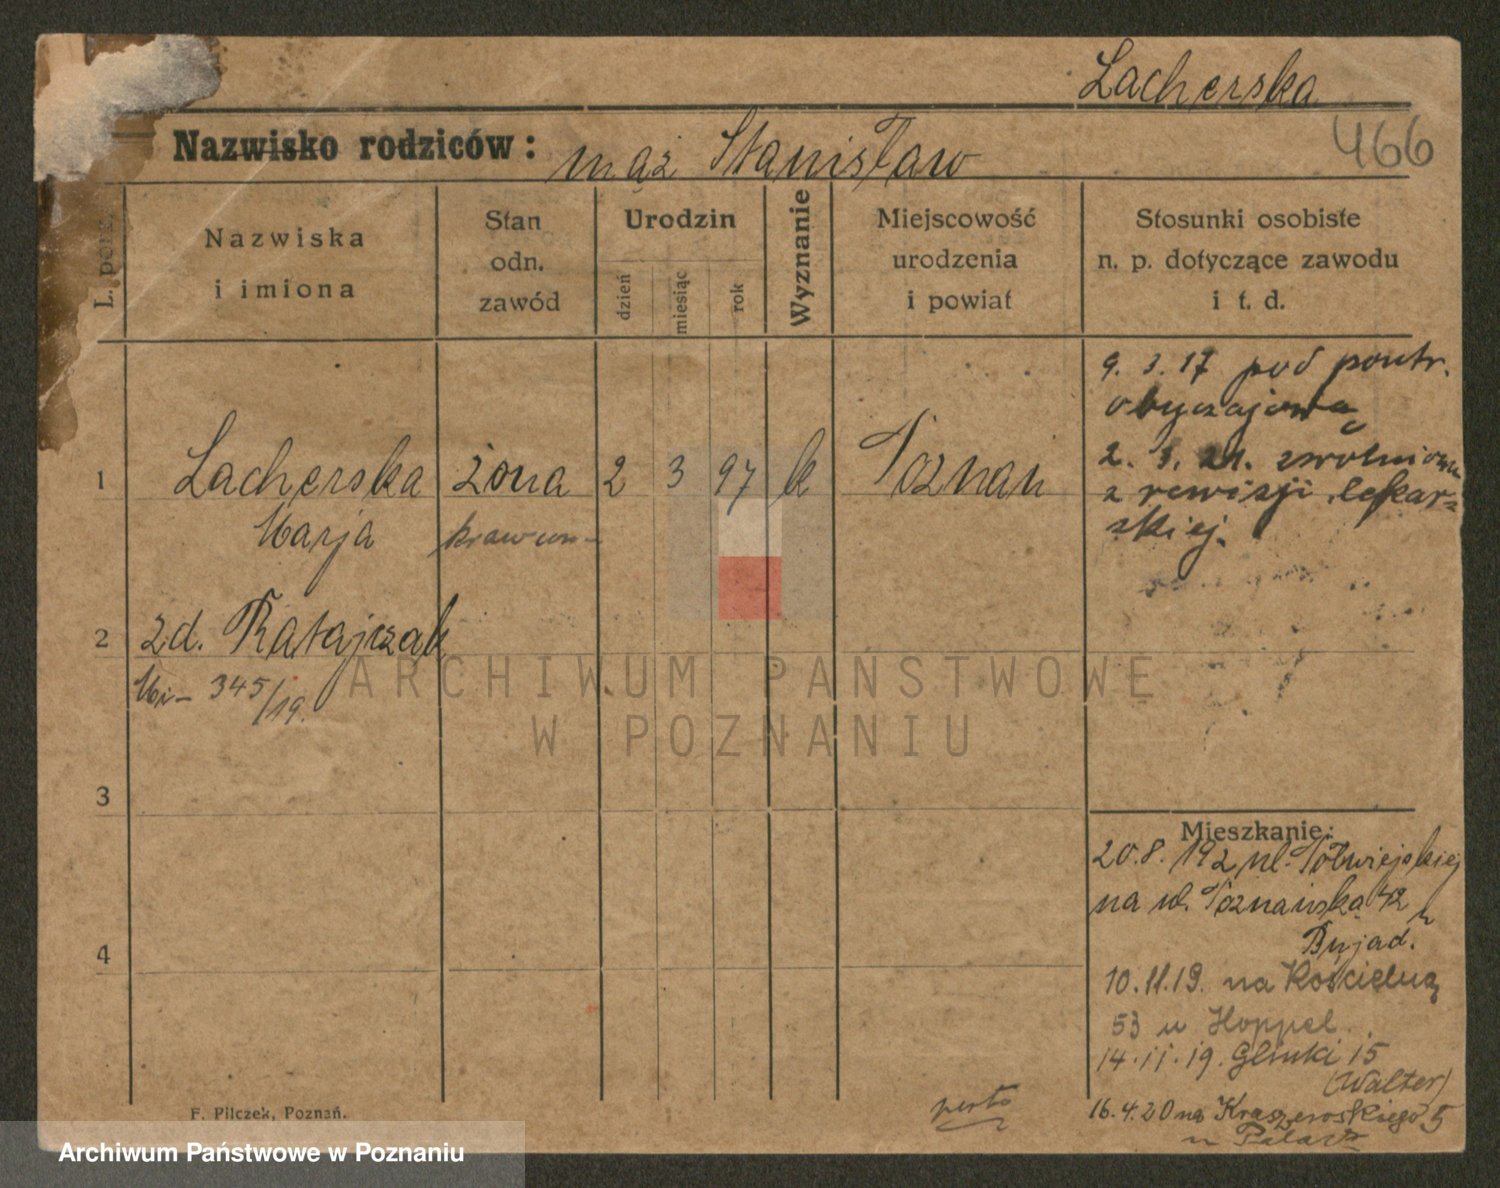 Lacherska
466
Nazwisko rodziców: mąż Stanisław
L. porz.
Nazwiska
i imiona
Stan
odn.
zawód
Urodzin
dzień
miesiąc
rok
Wyznanie
Miejscowość
urodzenia
i powiat
Stosunki osobiste
n. p. dotyczące zawodu
i t. d.
9. 3. 17 pod
obyczajową
2. 3. 21.
z rewizji lekar-
skiej.
1 Lacherska żona 2 3 97 k Poznań
Marja
2 zd. Ratajczak
345/19.
3
4
Mieszkanie:
20.8.19 z ul. Półwiejskiej
na ul. Poznańską 42
10.11.19. na Kościelną
53 u Hoppel.
14.11.19. Glinki 15
(Walter)
16.4.20 na Kraszewskiego 5
F. Pilczek, Poznań.
ARCHIWUM PAŃSTWOWE
W POZNANIU
Archiwum Państwowe w Poznaniu